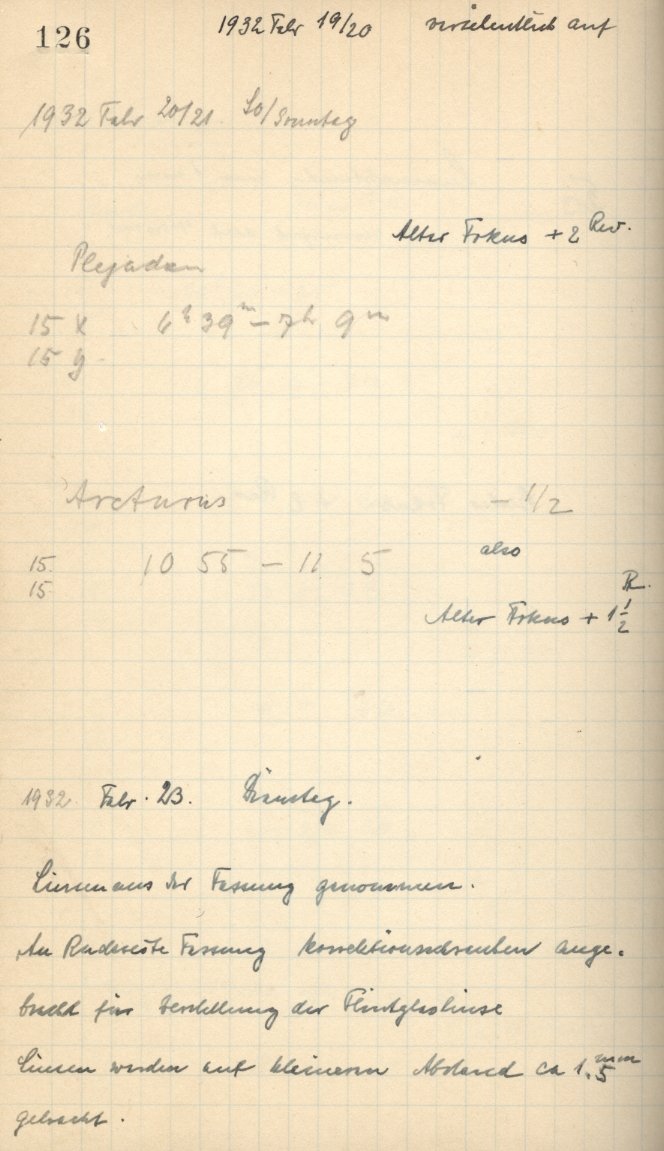 126 1932 Febr 19/20 versehentlich auf
1932 Febr 20/21 So/Sonntag
Alter Fokus + 2 Rev.
Plejaden
15 x 6h 39m – 7h 9m
15 y
Arcturus – 1/2
15 10 55 – 11 5 also
15
Alter Fokus + 1 1/2 R.
1932 Febr. 23. Dienstag.
Linsen aus der Fassung genommen.
An Fassung Korrektionsschrauben ange-
bracht für Verstellung der Flintglaslinse
Linsen werden auf kleineren Abstand ca 1.5 mm
gebracht.